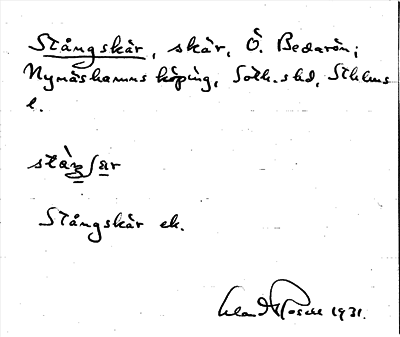 Stångskär, skär, Ö. Bedarön;
Nynäshamns köping, Soth. shd, Sthlms
l.
stång/ar
Stångskär ek.
1931.